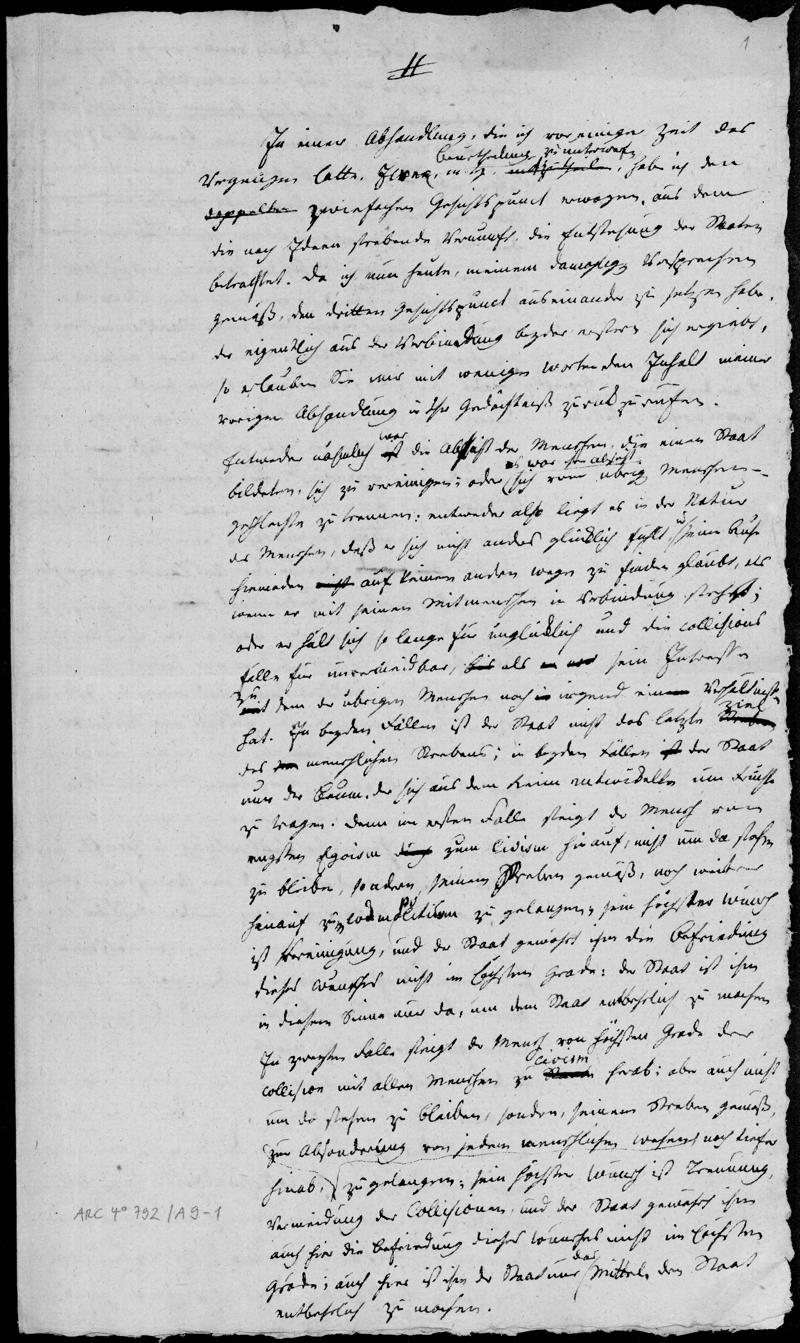 1
II
In einer Abhandlung, die ich vor einiger Zeit das
Beurtheilung zu unterwerfen
Vergnügen hatte, Ihrer, m. H. mitzutheilen, habe ich den
doppelten zwiefachen Gesichtspunct erwogen, aus dem
die nach Ideen strebende Vernunft die Entstehung der Staaten
betrachtet. Da ich nun heute, meinem damaligen Versprechen
gemäß, den dritten Gesichtspunct auseinander zu setzen habe,
der eigentlich aus der Verbindung beyder erstern sich ergiebt,
so erlauben Sie mir mit wenigen Worten den Inhalt meiner
vorigen Abhandlung in Ihr Gedächtniß zurückzurufen.
war
Entweder nähmlich ist die Absicht der Menschen, die einen Staat
es war ihre Absicht
bildeten, sich zu vereinigen; oder sich vom übrigen Menschen-
geschlechte zu trennen: entweder also liegt es in der Natur
des Menschen, daß er sich nicht anders glücklich fühlt u seine Ruhe
hienieden nicht auf keinem andern Wege zu finden glaubt, als
wenn er mit seinen Mitmenschen in Verbindung steht;
oder er hält sich so lange für unglücklich und die Collisions
fälle für unvermeidbar, bis als sein Interesse
zu
mit dem der übrigen Menschen noch in irgend einem Verhältniße
Ziel
hat. In beyden Fällen ist der Staat nicht das letzte Streben
des menschlichen Strebens; in beyden Fällen ist der Staat
nur der Baum, der sich aus dem Keim entwickelte um Früchte
zu tragen. Denn im ersten Falle steigt der Mensch vom
engsten Egoism durch zum Civism hinauf, nicht um da stehen
zu bleiben, sondern, seinem Streben gemäß, noch weiter
hinauf zum Cosmopolitism zu gelangen; sein höchster Wunsch
ist Vereinigung, und der Staat gewährt ihm die Befriedigung
dieses Wunsches nicht im höchsten Grade: der Staat ist ihm
in diesem Sinne nur da, um den Staat entbehrlich zu machen
Im zweyten Falle steigt der Mensch vom höchsten Grade der
Civism
Collision mit allen Menschen zum Staate herab: aber auch nicht
um da stehen zu bleiben, sondern, seinem Streben gemäß,
zur Absonderung von jedem menschlichen Wesen noch tiefer
hinab, zu gelangen; sein höchster Wunsch ist Trennung,
Vermeidung der Collisionen, und der Staat gewährt ihm
auch hier die Befriedigung dieses Wunsches nicht im höchsten
das
Grade; auch hier ist ihm der Staat nur Mittel, den Staat
entbehrlich zu machen.
ARC 4° 792/A9-1